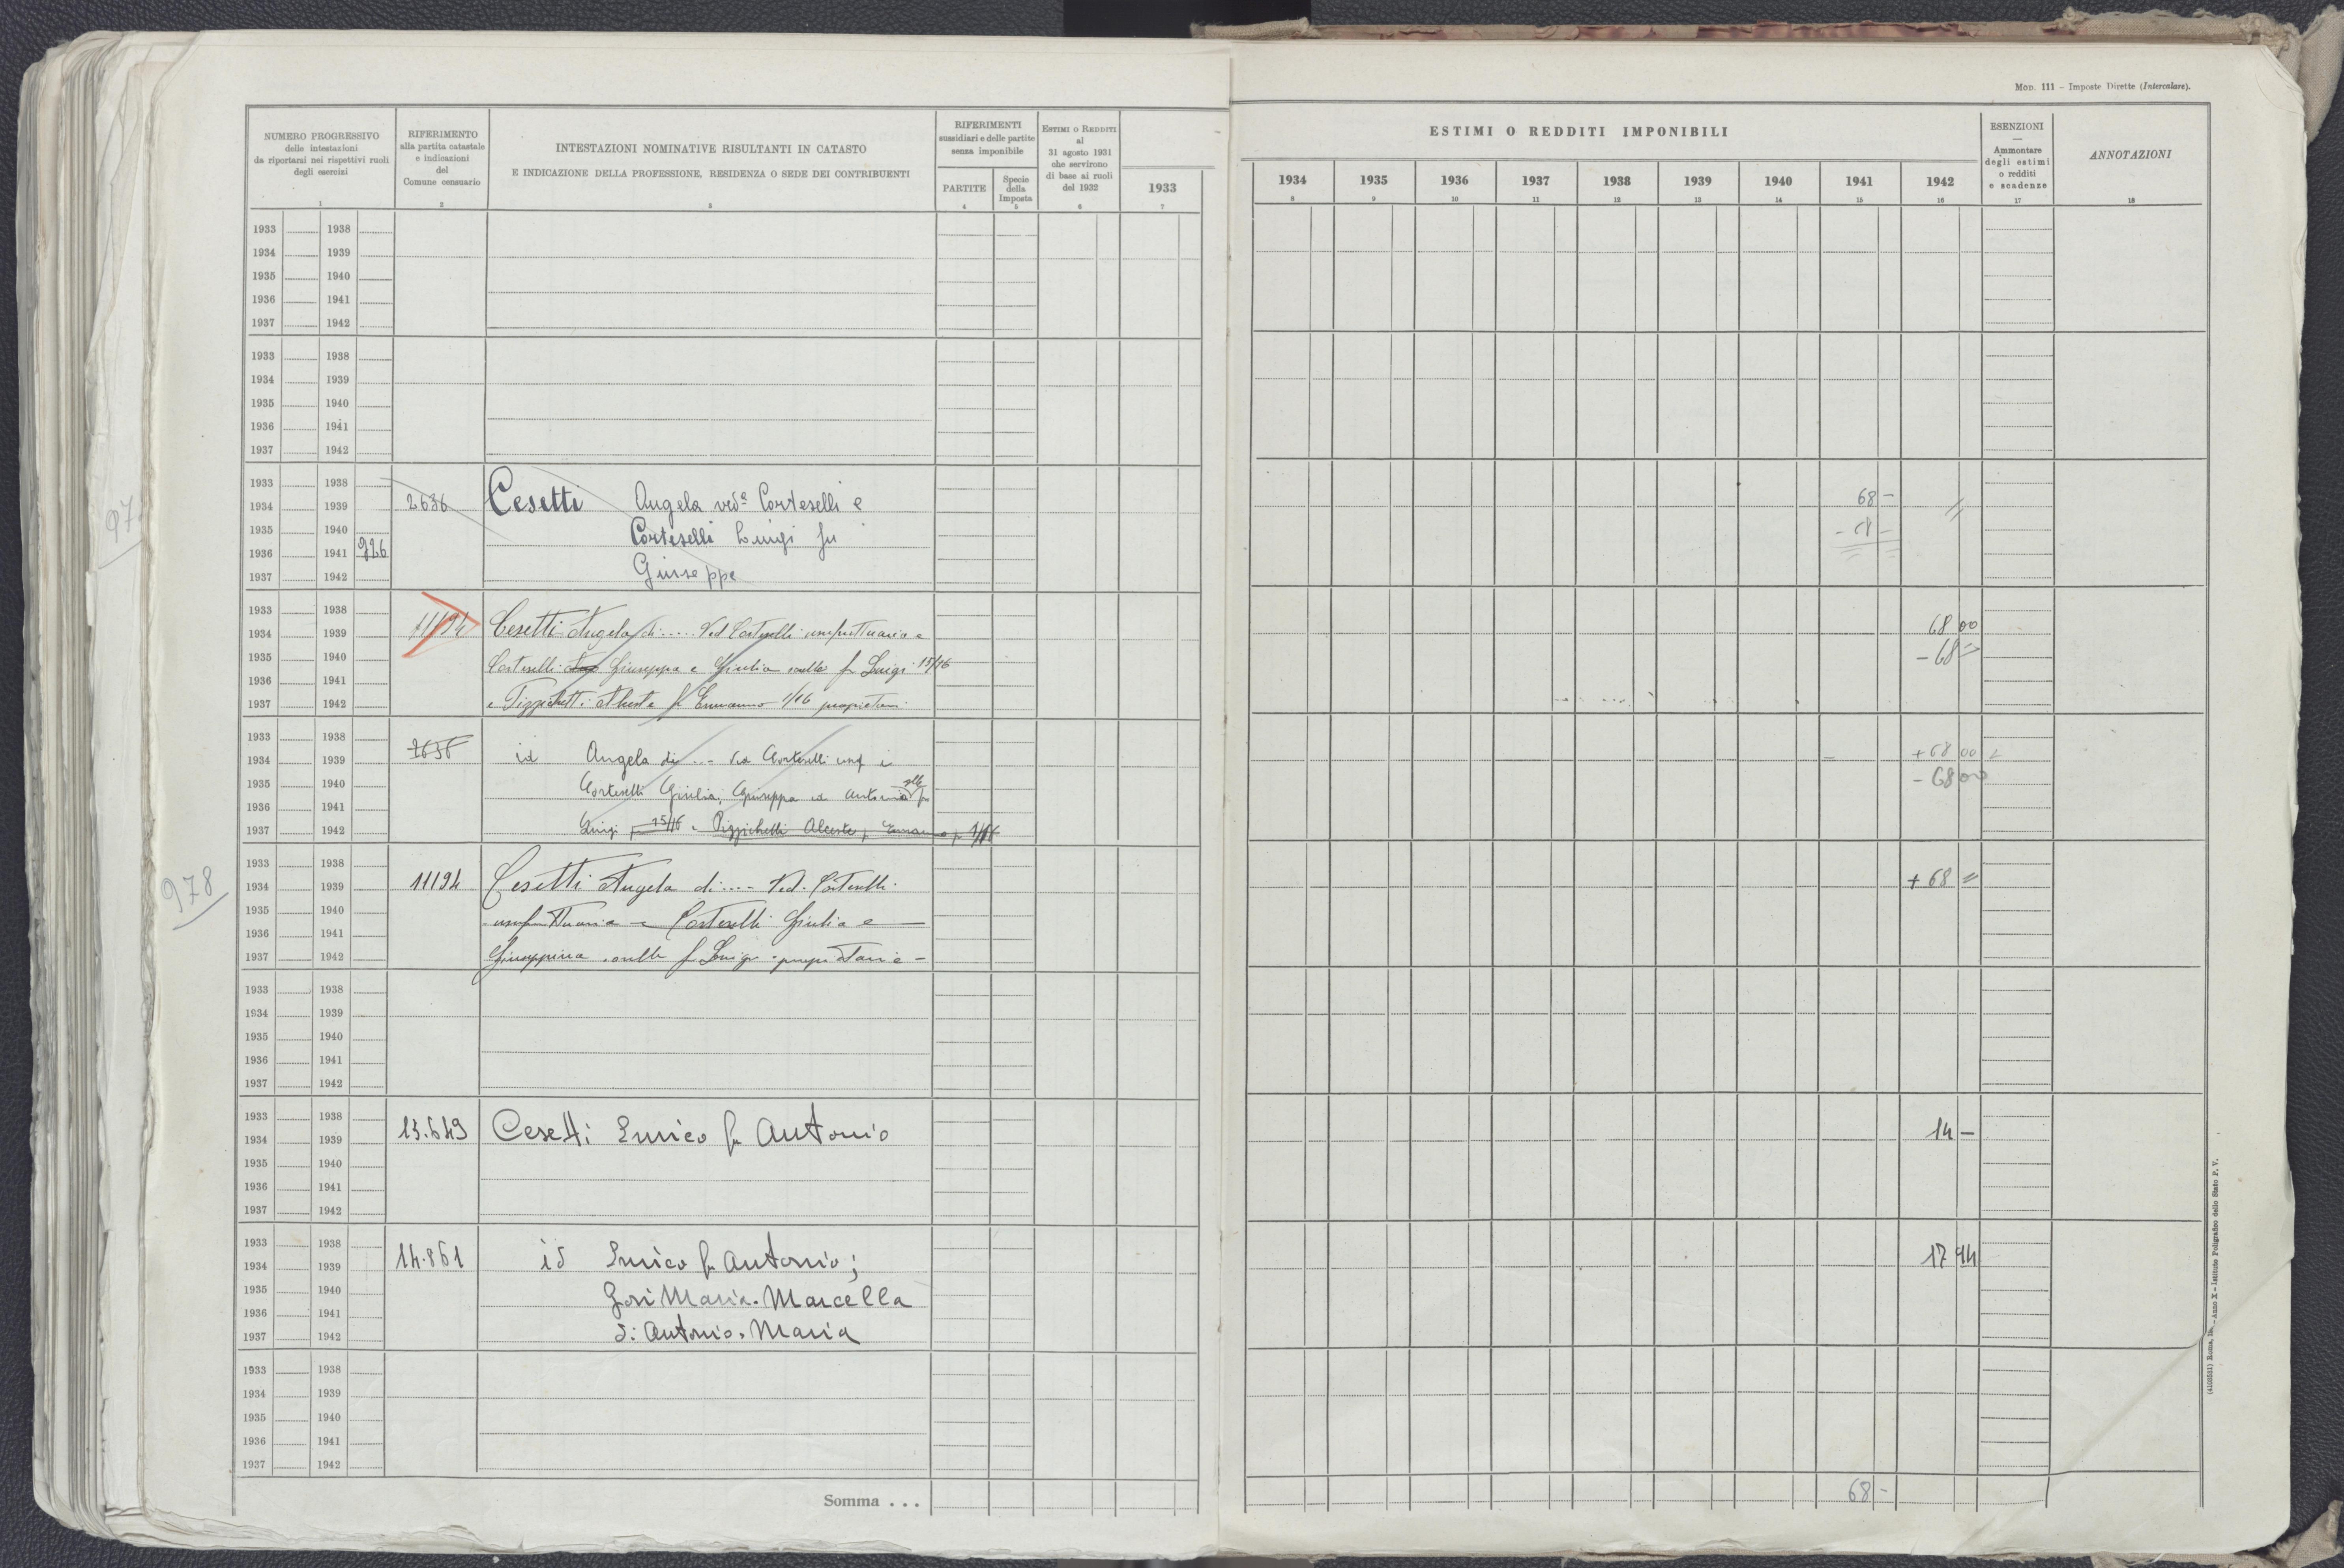 Mod. 111 – Imposte Dirette (Intercalare).
NUMERO PROGRESSIVO
delle intestazioni
da riportarsi nei rispettivi ruoli
degli esercizi
1
RIFERIMENTO
alla partita catastale
e indicazioni
del
Comune censuario
2
INTESTAZIONI NOMINATIVE RISULTANTI IN CATASTO
E INDICAZIONE DELLA PROFESSIONE, RESIDENZA O SEDE DEI CONTRIBUENTI
3
RIFERIMENTI
sussidiari e delle partite
senza imponibile
PARTITE
4
Specie
della
Imposta
5
Estimi o Redditi
al
31 agosto 1931
che servirono
di base ai ruoli
del 1932
6
1933
7
ESTIMI O REDDITI IMPONIBILI
1934 1935 1936 1937 1938 1939 1940 1941 1942
8 9 10 11 12 13 14 15 16
ESENZIONI
—
Ammontare
degli estimi
o redditi
e scadenze
17
ANNOTAZIONI
18
1933 1938
1934 1939
1935 1940
1936 1941
1937 1942
1933 1938
1934 1939
1935 1940
1936 1941
1937 1942
97
1933 1938
1934 1939 2636 Cesetti Angela ved.a Corteselli e 68 –
1935 1940 Corteselli Luigi fu - 68 -
1936 1941 926
1937 1942 Giuseppe
1933 1938
1934 1939 11194 Cesetti Angela di ..... Ved Corteselli usufruttuaria e 68 00
1935 1940 Corteselli Giuseppa e Giulia sorelle fu Luigi 15/16 - 68
1936 1941
1937 1942 e Pizzichetti Alceste fu Ermanno 1/16 proprietari
1933 1938
1934 1939 2636 id Angela di ... Ved Corteselli usuf e + 68 00
1935 1940 Corteselli Giulia, Giuseppa ed Antonia slle fu - 68 00
1936 1941
1937 1942 Luigi p 15/16 e Pizzichelli Alceste fu Ermanno p 1/16
978
1933 1938
1934 1939 11194 Cesetti Angela di ... Ved. Corteselli + 68 =
1935 1940 usufruttuaria e Corteselli Giulia e
1936 1941
1937 1942 Giuseppina sorelle fu Luigi proprietarie -
1933 1938
1934 1939
1935 1940
1936 1941
1937 1942
1933 1938
1934 1939 13.649 Cesetti Enrico fu Antonio 14 –
1935 1940
1936 1941
1937 1942
1933 1938
1934 1939 14.861 id Enrico fu Antonio; 17 94
1935 1940 Gori Maria-Marcella
1936 1941
1937 1942 di Antonio-Maria
1933 1938
1934 1939
1935 1940
1936 1941
1937 1942
Somma . . . 68 –